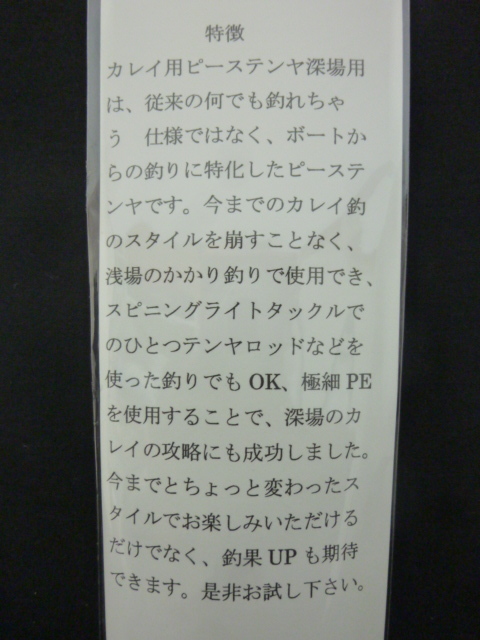 特徴
カレイ用ピーステンヤ深場用
は、従来の何でも釣れちゃ
う　仕様ではなく、ボートか
らの釣りに特化したピーステ
ンヤです。今までのカレイ釣
のスタイルを崩すことなく、
浅場のかかり釣りで使用でき、
スピニングライトタックルで
のひとつテンヤロッドなどを
使った釣りでも OK、極細 PE
を使用することで、深場のカ
レイの攻略にも成功しました。
今までとちょっと変わったス
タイルでお楽しみいただける
だけでなく、釣果 UP も期待
できます。是非お試し下さい。